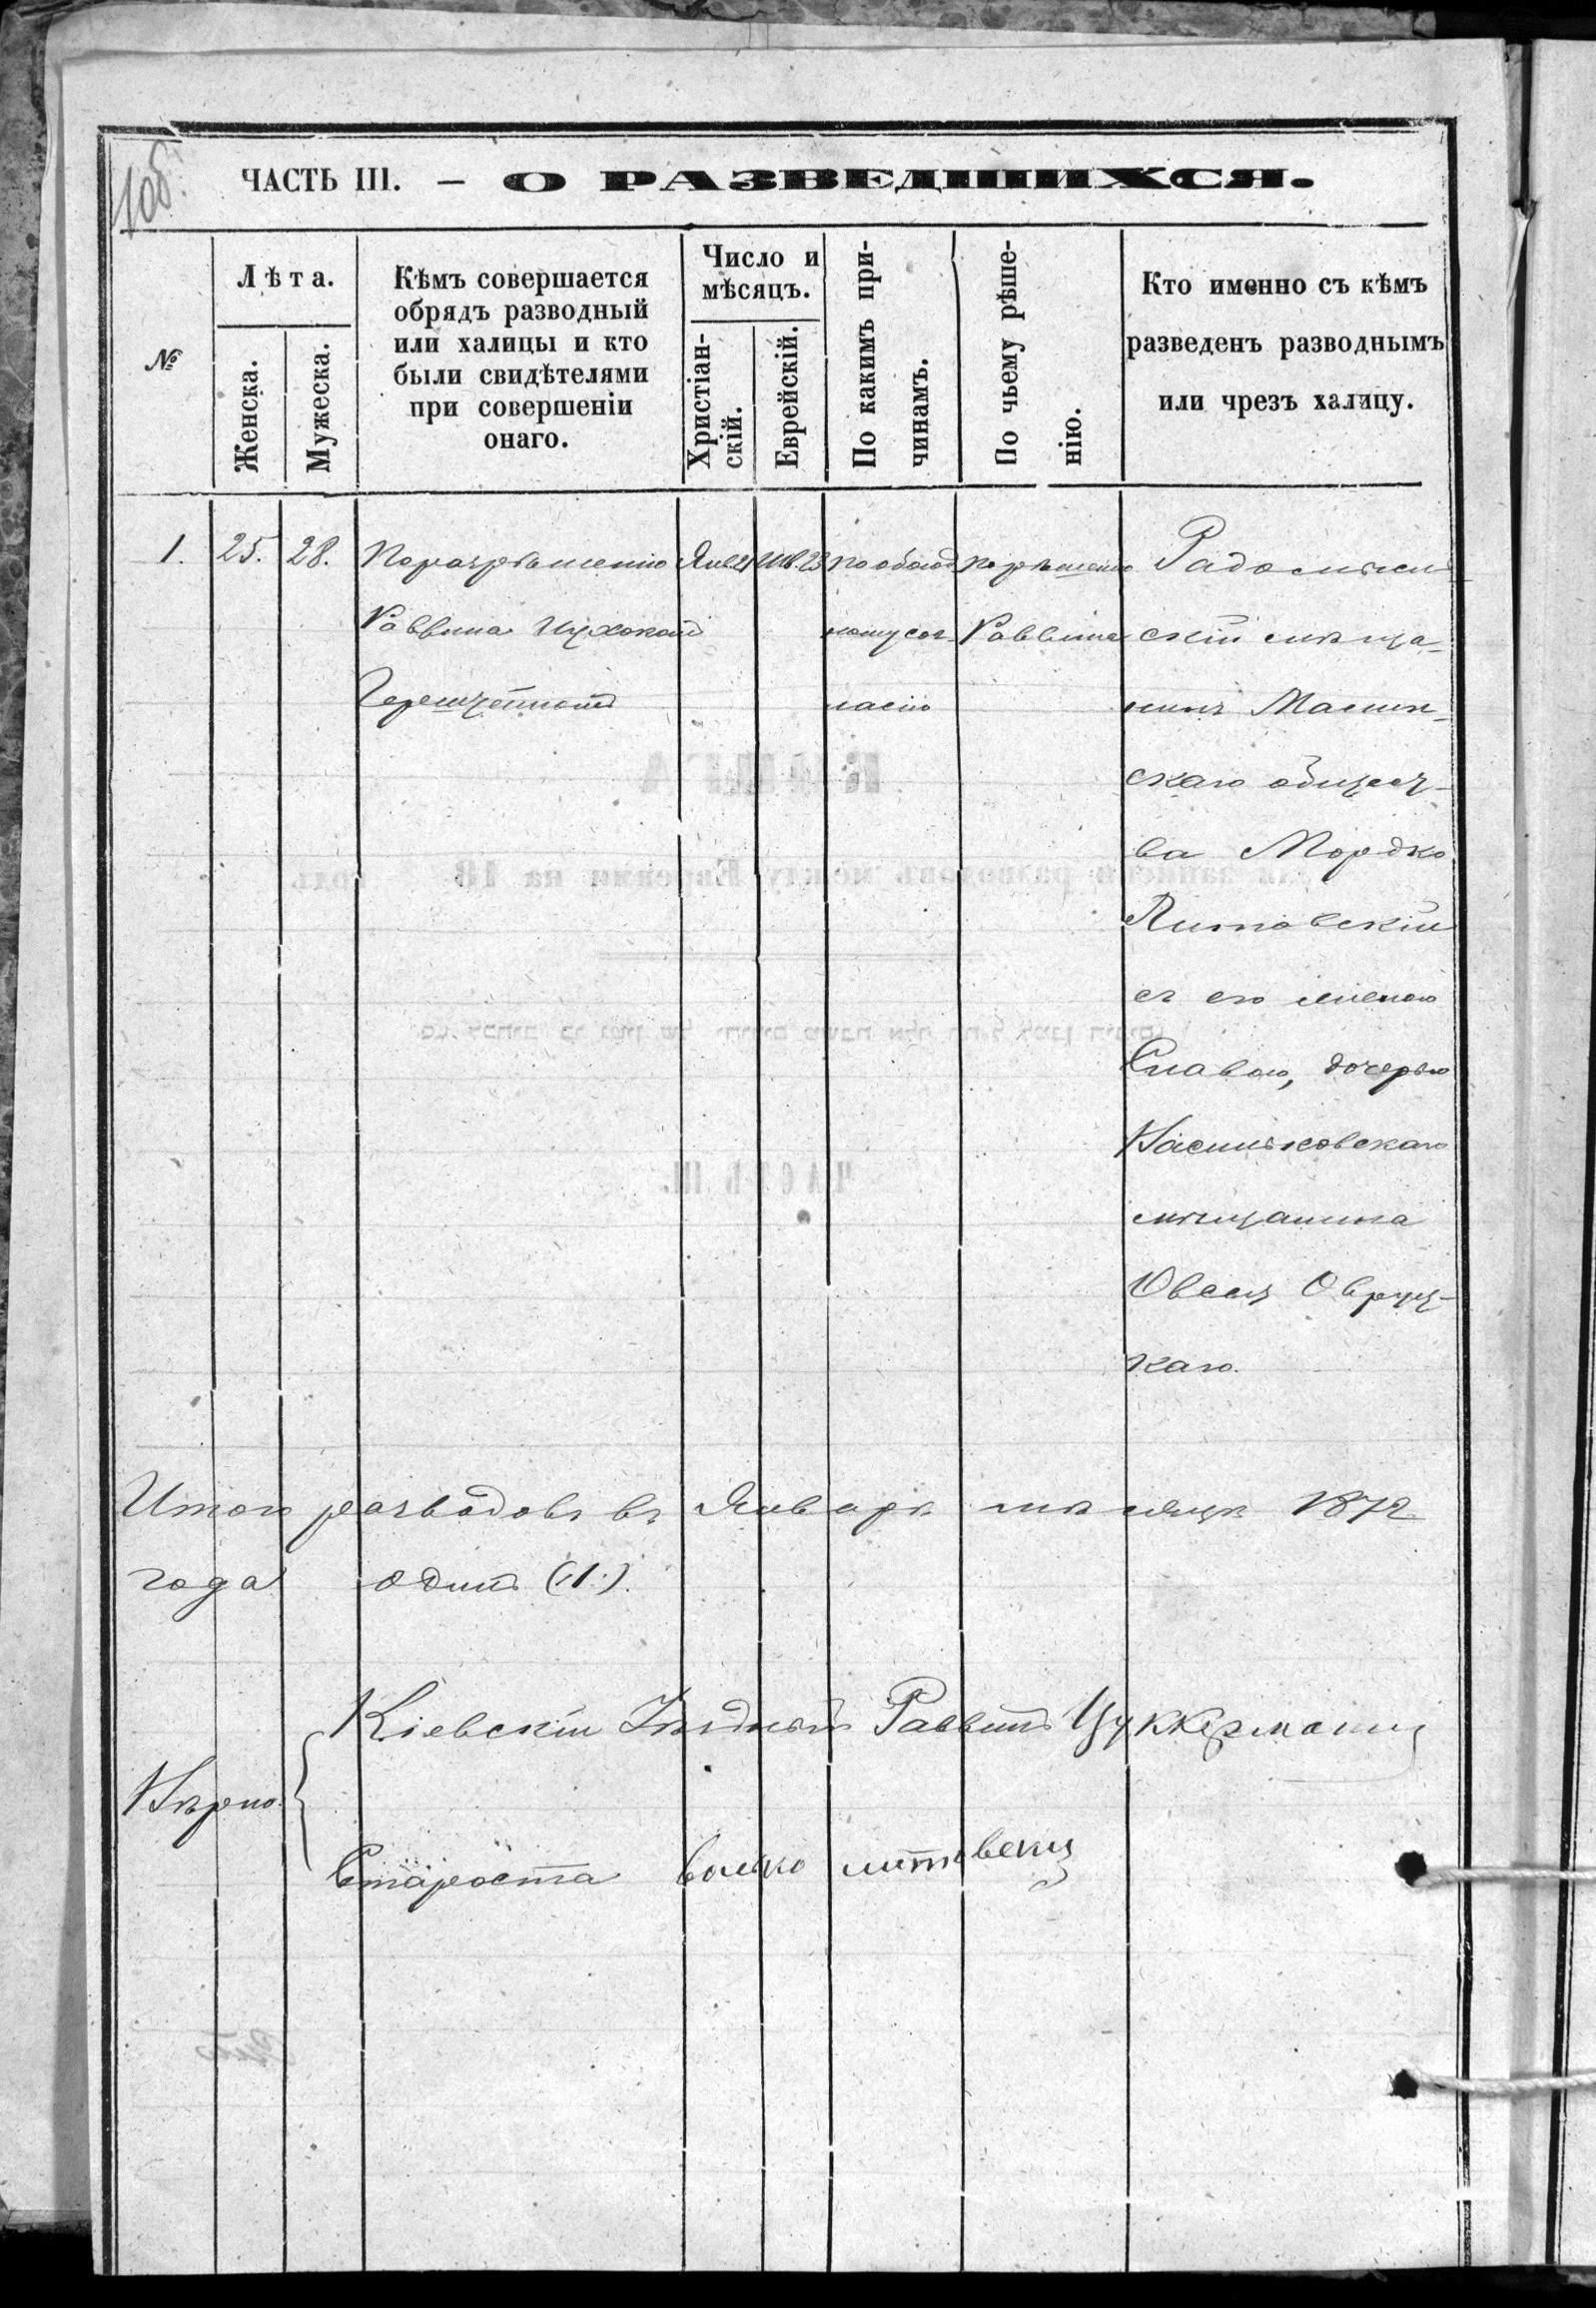 10б.
ЧАСТЬ III. – О РАЗВЕДШИХСЯ.
№
Лѣта.
Женска.
Мужеска.
Кѣмъ совершается
обрядъ разводный
или халицы и кто
были свидѣтелями
при совершеніи
онаго.
Число и
мѣсяцъ.
Христіан-
скій.
Еврейскій.
По какимъ при-
чинамъ.
По чьему рѣше-
нію.
Кто именно съ кѣмъ
разведенъ разводнымъ
или чрезъ халицу.
1. 25. 28.
По разрѣшенію
Раввина
Янв. 21
Шв. 23
по обоюд
ному сог-
ласію
по рѣшенію
Раввина
Радомысль
скій мѣща-
нинъ Малин-
скаго общест-
ва Мордко
Литовскій
съ его женою
Славою, дочерью
Васильковскаго
мѣщанина
Овсея Овруц-
каго.
Итого разводовъ въ Январѣ мѣсяцѣ 1872
года одинъ (1.).
Вѣрно.
Кіевскій Уѣздный Раввинъ Цуккерманъ
Староста Волько